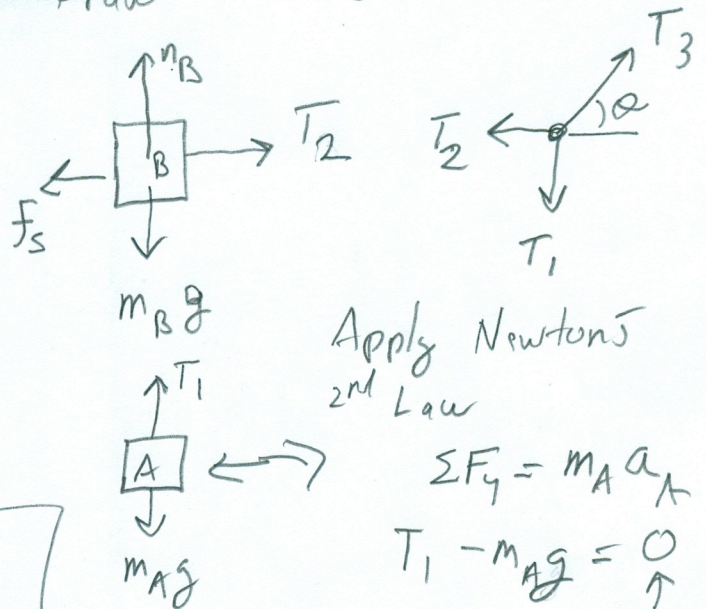 n_B
B
T_2
f_s
m_B g
T_3
θ
T_2
T_1
Apply Newtons
2nd Law
T_1
A
ΣF_y = m_A a_A
m_A g
T_1 - m_A g = 0
↑